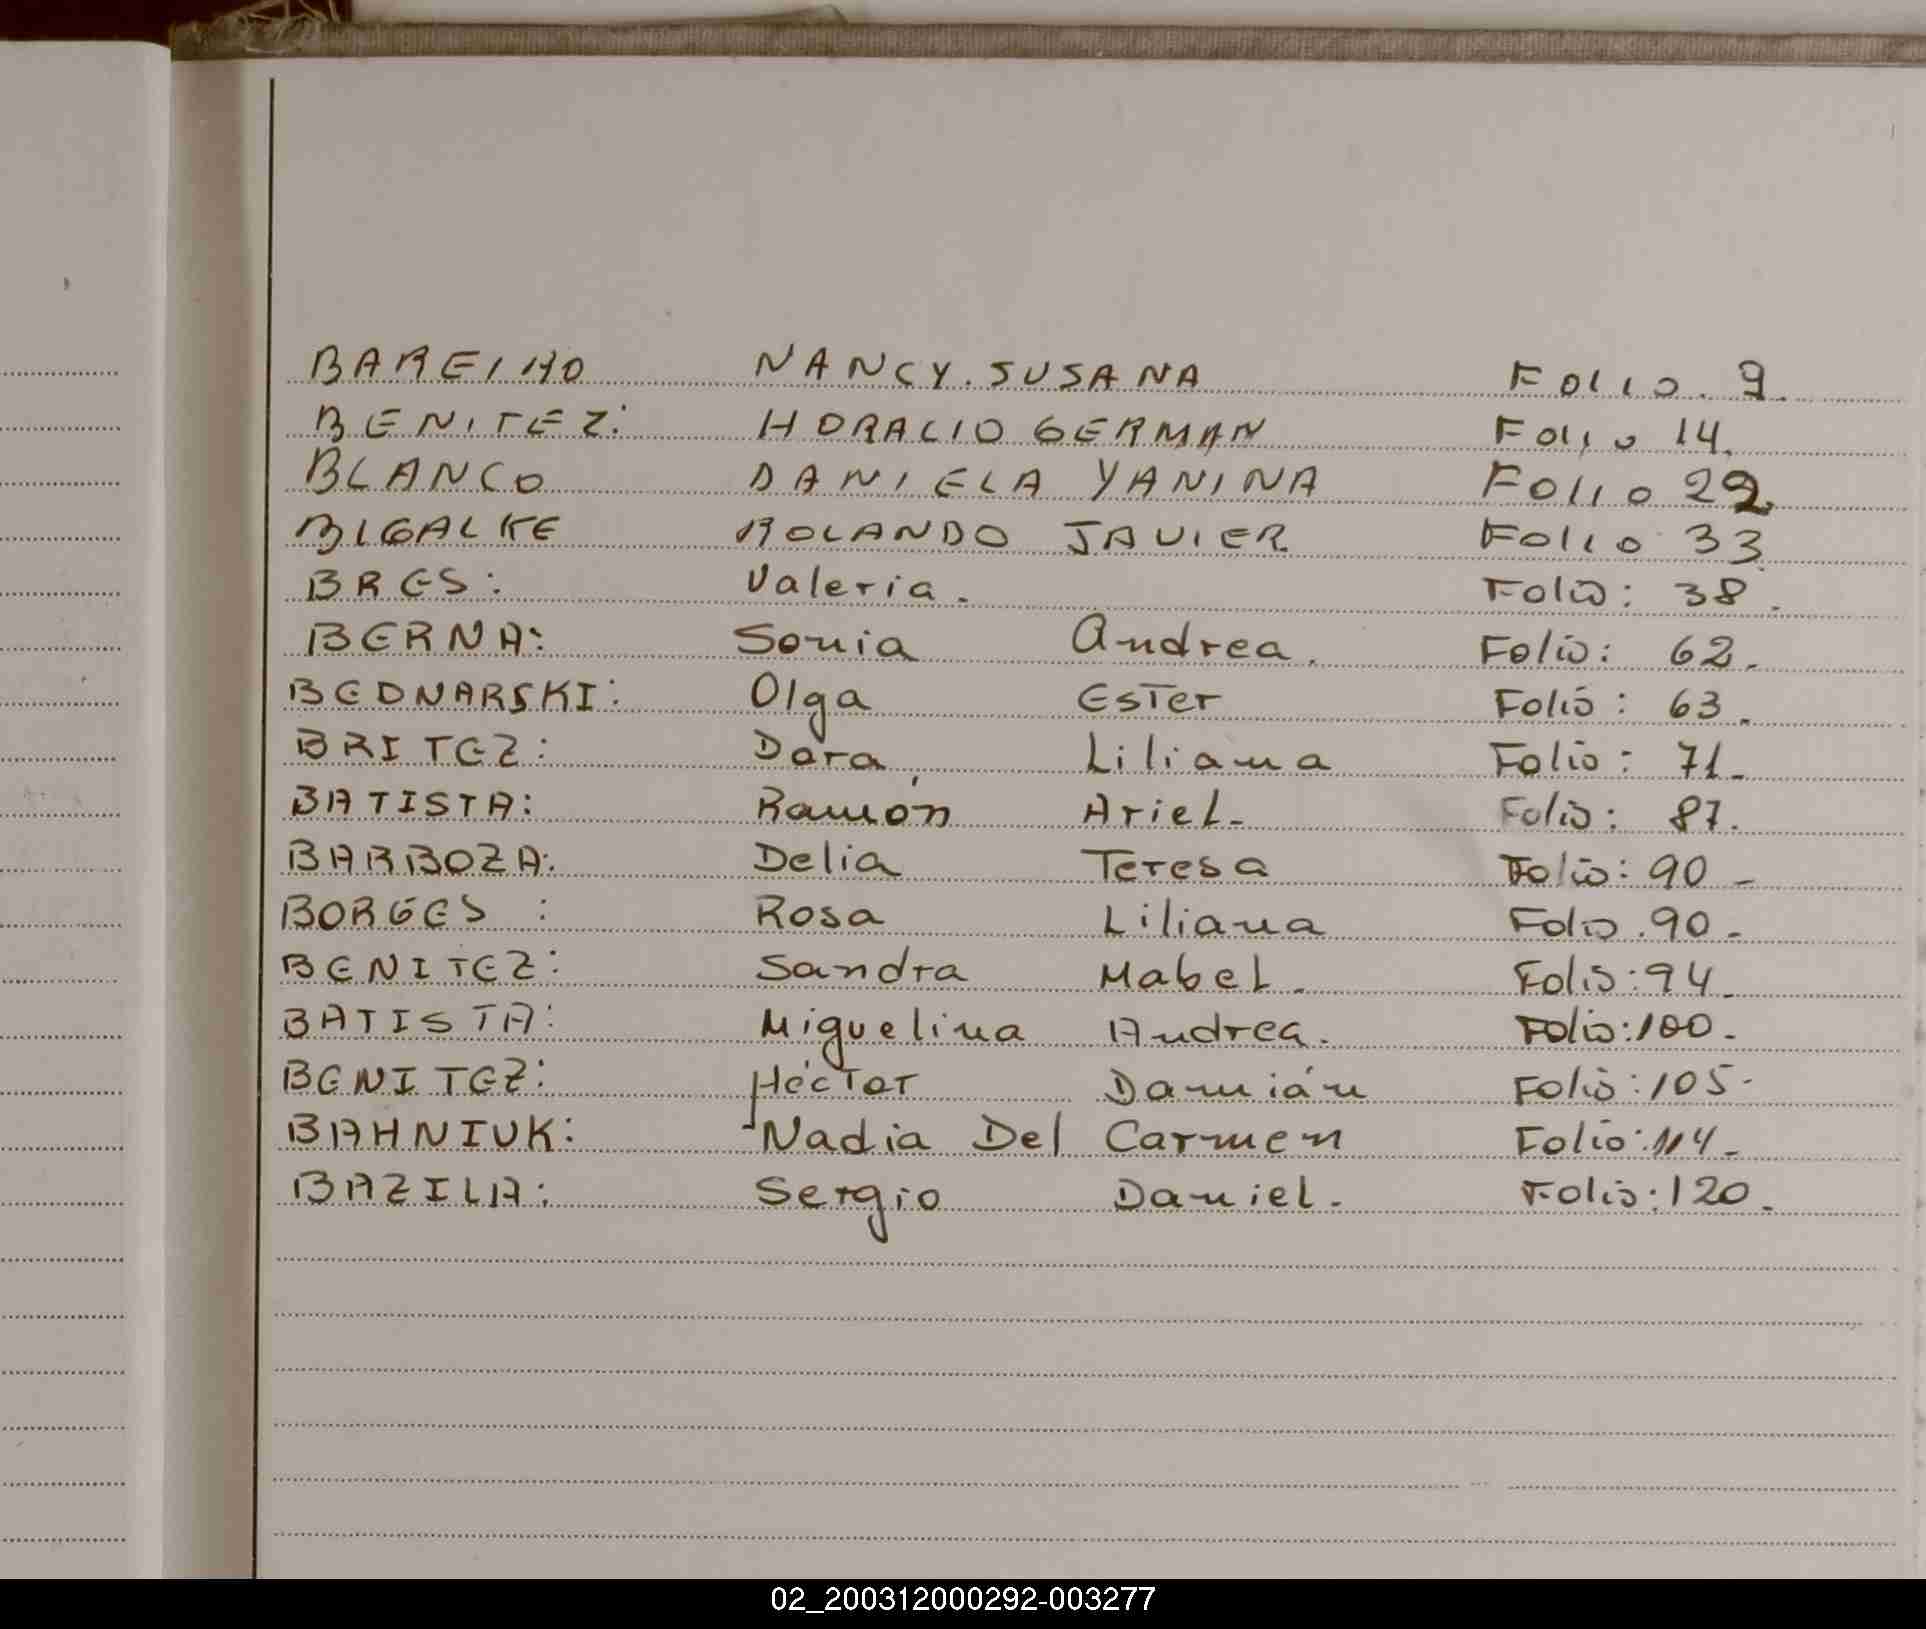 BAREIHO NANCY. SUSANA FOLIO. 9.
BENITEZ: HORACIO GERMAN FOLIO 14.
BLANCO DANIELA YANINA FOLIO 22.
BIGALKE ROLANDO JAVIER FOLIO 33
BRES: Valeria. Folio: 38.
BERNA: Sonia Andrea. Folio: 62.
BEDNARSKI: Olga Ester Folio: 63.
BRITEZ: Dora Liliana Folio: 71-
BATISTA: Ramón Ariel- Folio: 87.
BARBOZA: Delia Teresa Folio: 90-
BORGES : Rosa Liliana Folio. 90-
BENITEZ: Sandra Mabel. Folio: 94-
BATISTA: Miguelina Andrea. Folio: 100.-
BENITEZ: Héctor Damián Folio: 105-
BAHNIUK: Nadia Del Carmen Folio: 114-
BAZILA: Sergio Daniel. Folio: 120.
02_200312000292-003277